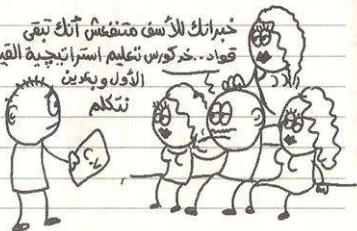 خبراتك للأسف متنفعش أنك تبقى
قواد..خد كورس تعليم استراتيجية القي
الأول وبعدين
نتكلم
C.V